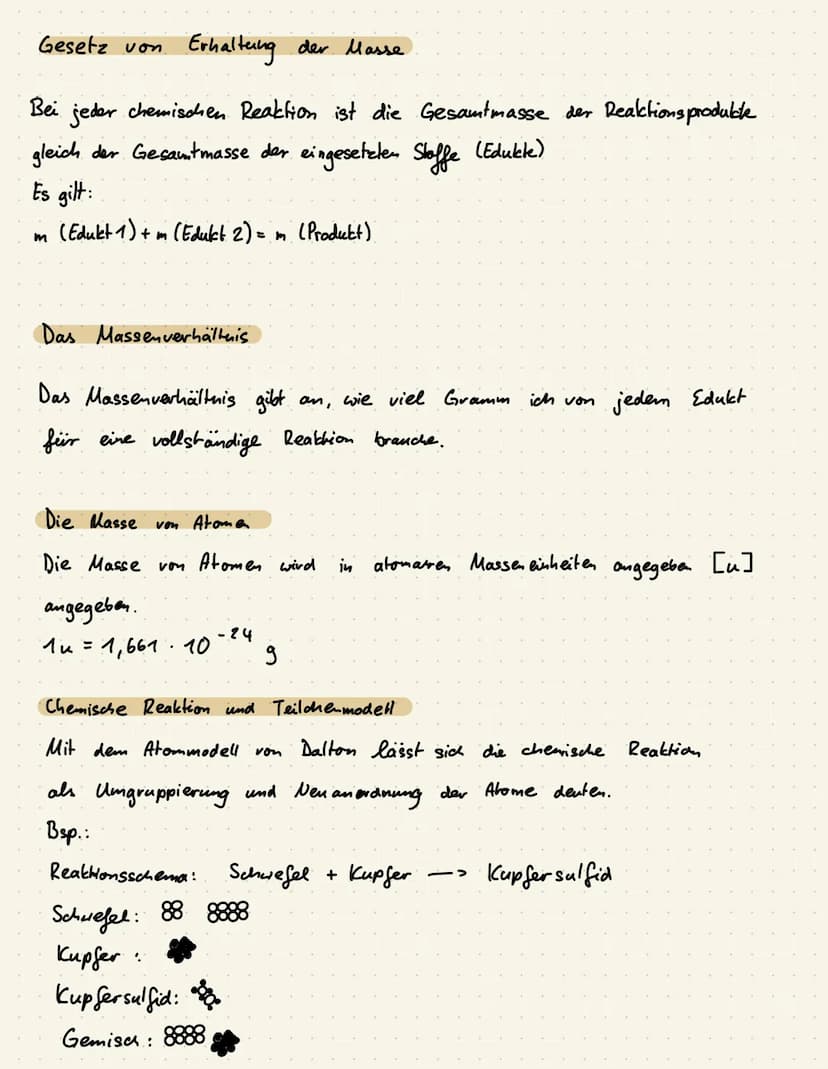 Gesetz von Erhaltung der Masse
Bei jeder chemischen Reaktion ist die Gesamtmasse der Reaktionsprodukte
gleich der Gesamtmasse der eingesetzten Stoffe (Edukte)
Es gilt:
m (Edukt 1) + m (Edukt 2) = m (Produkt)
Das Massenverhältnis
Das Massenverhältnis gibt an, wie viel Gramm ich von jedem Edukt
für eine vollständige Reaktion brauche.
Die Masse von Atomen
Die Masse von Atomen wird in atomaren Masseneinheiten angegeben [u]
angegeben.
1u = 1,661 · 10⁻²⁴ g
Chemische Reaktion und Teilchenmodell
Mit dem Atommodell von Dalton lässt sich die chemische Reaktion
als Umgruppierung und Neuanordnung der Atome deuten.
Bsp.:
Reaktionsschema: Schwefel + Kupfer —> Kupfersulfid
Schwefel:
Kupfer :
Kupfersulfid:
Gemisch :